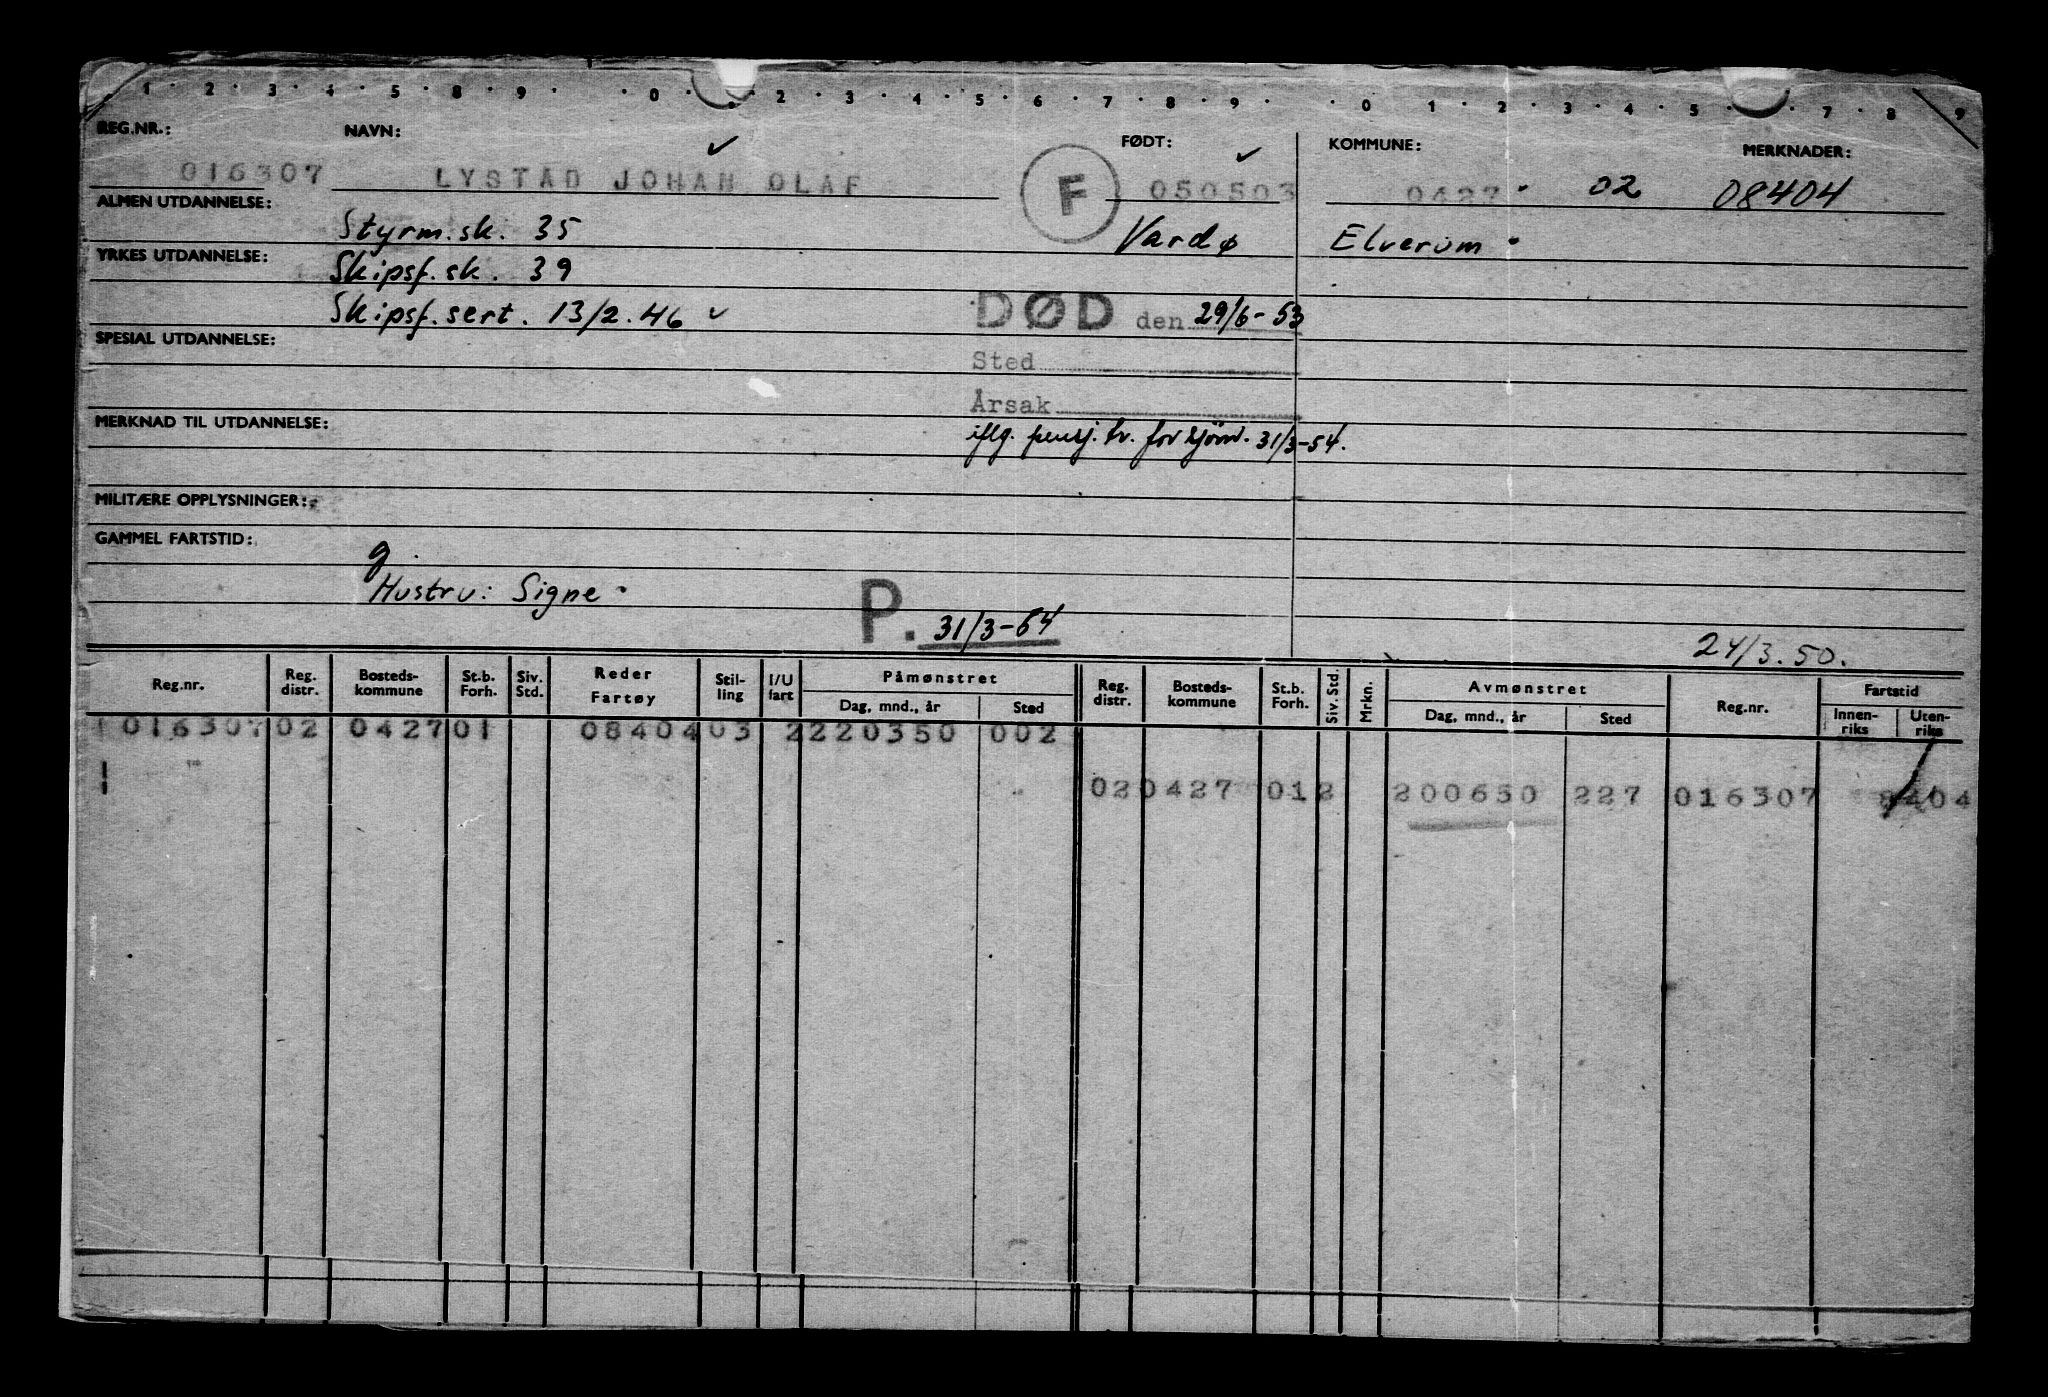 1 · 2 · 3 · 4 · 5 · 8 · 9 · · 0 · · 2 · 3 · 4 · 5 · 6 · 7 · 8 · 9 · · 0 · 1 · 2 · 3 · 4 · 5 · · 7 · 8 · 9
REG.NR.: NAVN: FØDT: KOMMUNE: MERKNADER:
016307 LYSTAD JOHAN OLAF F 050503 0427 02 08404
ALMEN UTDANNELSE: Styrm.sk. 35 Vardø Elverum
YRKES UTDANNELSE: Skipsf.sk. 39
Skipsf.sert. 13/2.46 DØD den 29/6-53
SPESIAL UTDANNELSE: Sted
Årsak
MERKNAD TIL UTDANNELSE: iflg. pensj.tr. for sjøm. 31/3-54.
MILITÆRE OPPLYSNINGER:
GAMMEL FARTSTID: g.
Hustru: Signe P. 31/3-54
24/3.50.
Reg.nr. Reg. distr. Bosteds-kommune St.b. Forh. Siv. Std. Reder Fartøy Stil-ling I/U fart Påmønstret Dag, mnd., år Sted Reg. distr. Bosteds-kommune St.b. Forh. Siv. Std. Mrkn. Avmønstret Dag, mnd., år Sted Reg.nr. Fartstid Innen-riks Uten-riks
016307 02 0427 01 08404 03 2 220350 002
02 0427 01 2 200650 227 016307 8404